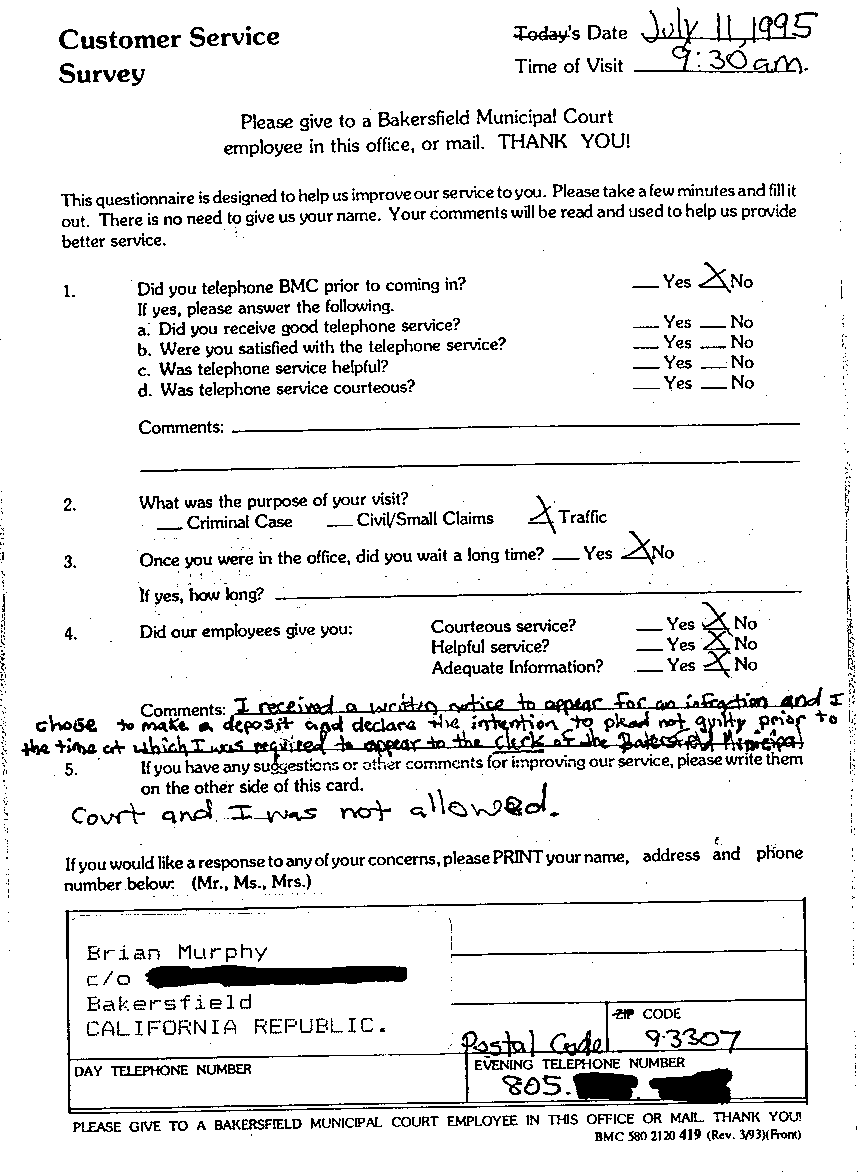 Customer Service
Survey
Today's Date July 11, 1995
Time of Visit 9:30 am.
Please give to a Bakersfield Municipal Court
employee in this office, or mail. THANK YOU!
This questionnaire is designed to help us improve our service to you. Please take a few minutes and fill it
out. There is no need to give us your name. Your comments will be read and used to help us provide
better service.
1. Did you telephone BMC prior to coming in? __ Yes X No
If yes, please answer the following.
a. Did you receive good telephone service? __ Yes __ No
b. Were you satisfied with the telephone service? __ Yes __ No
c. Was telephone service helpful? __ Yes __ No
d. Was telephone service courteous? __ Yes __ No
Comments:
2. What was the purpose of your visit?
__ Criminal Case __ Civil/Small Claims X Traffic
3. Once you were in the office, did you wait a long time? __ Yes X No
If yes, how long?
4. Did our employees give you: Courteous service? __ Yes X No
Helpful service? __ Yes X No
Adequate Information? __ Yes X No
Comments: I received a written notice to appear for an infraction and I
chose to make a deposit and declare the intention to plead not guilty prior to
the time at which I was required to appear to the clerk of the Bakersfield
5. If you have any suggestions or other comments for improving our service, please write them
on the other side of this card.
Court and I was not allowed.
If you would like a response to any of your concerns, please PRINT your name, address and phone
number below: (Mr., Ms., Mrs.)
Brian Murphy
c/o
Bakersfield
CALIFORNIA REPUBLIC.
ZIP CODE
Postal Code 93307
DAY TELEPHONE NUMBER
EVENING TELEPHONE NUMBER
805.
PLEASE GIVE TO A BAKERSFIELD MUNICIPAL COURT EMPLOYEE IN THIS OFFICE OR MAIL. THANK YOU!
BMC 580 2120 419 (Rev. 3/93)(Front)